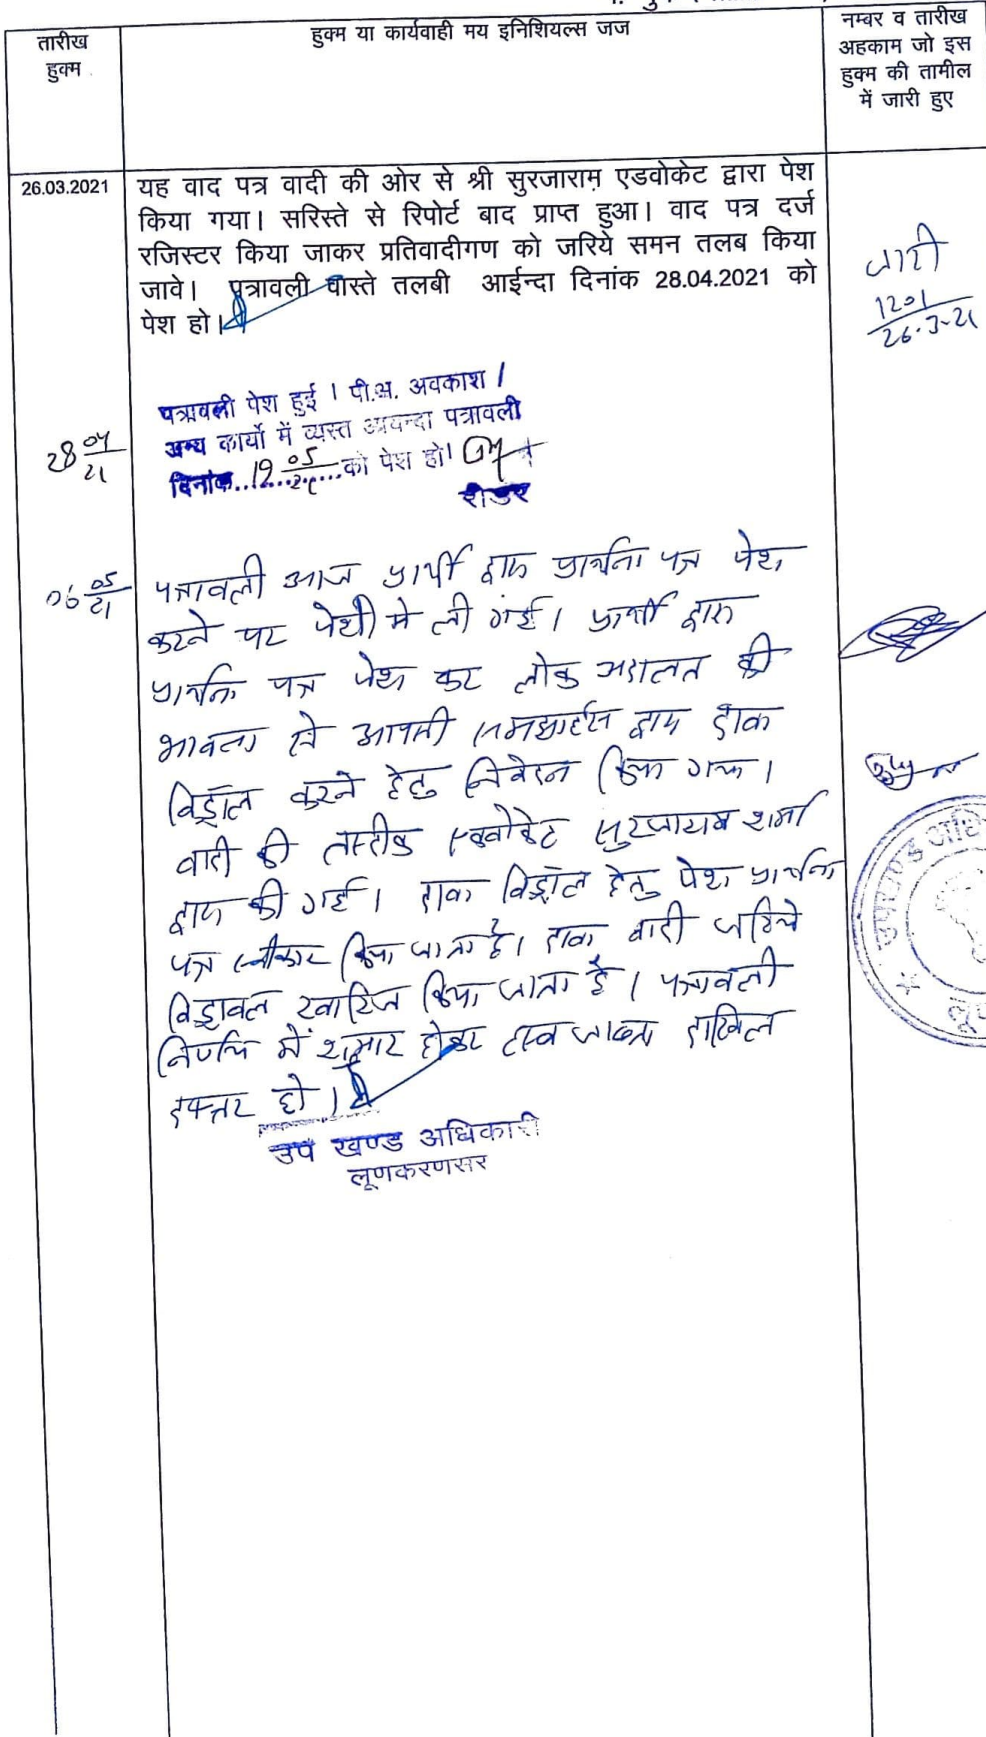 तारीख
हुक्म
हुक्म या कार्यवाही मय इनिशियल्स जज
नम्बर व तारीख
अहकाम जो इस
हुक्म की तामील
में जारी हुए
26.03.2021
यह वाद पत्र वादी की ओर से श्री सुरजाराम एडवोकेट द्वारा पेश
किया गया। सरिस्ते से रिपोर्ट बाद प्राप्त हुआ। वाद पत्र दर्ज
रजिस्टर किया जाकर प्रतिवादीगण को जरिये समन तलब किया
जावे। पत्रावली वास्ते तलबी आईन्दा दिनांक 28.04.2021 को
पेश हो।
जारी
1201
26-3-21
28 04/21
पत्रावली पेश हुई । पी.अ. अवकाश /
अन्य कार्यो में व्यस्त आयन्दा पत्रावली
दिनांक..19 05/21...को पेश हो।
रीडर
06 05/21
पत्रावली आज प्रार्थी द्वारा प्रार्थना पत्र पेश
करने पर पेशी मे ली गई। प्रार्थी द्वारा
प्रार्थना पत्र पेश कर लोक अदालत की
भावना से आपसी समझाईस द्वारा दावा
विड्रॉल करने हेतु निवेदन किया गया।
वादी की तस्दीक एडवोकेट सुरजाराम शर्मा
द्वारा की गई। दावा विड्रॉल हेतु पेश प्रार्थना
पत्र स्वीकार किया जाता है। दावा वादी जरिये
विड्रावल खारिज किया जाता है। पत्रावली
निर्णय में शुमार होकर जाब्ता दाखिल
दफ्तर हो।
उप खण्ड अधिकारी
लूणकरणसर
उपखण्ड अधि
लू